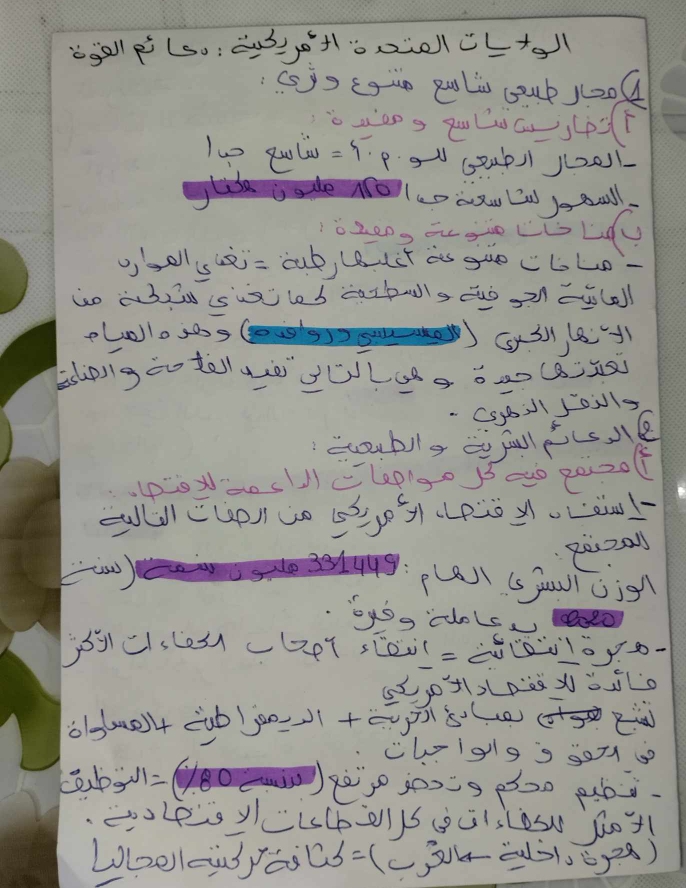 الولايات المتحدة الأمريكية : دعائم القوة
1) مجال طبيعي شاسع متنوع وثري :
أ) تضاريس شاسع و مفيدة :
- المجال الطبيعي للو.م.أ = شاسع جدا
- السهول شاسعة جدا 160 مليون هكتار
ب) مناخات متنوعة ومفيدة :
- مناخات متنوعة أغلبها رطبة = تغني الموارد
المائية الجوفية والسطحية كما تغني شبكة من
الأنهار الكبرى (الميسيسبي وروافده) وهذه المياه
تعبئتها جيدة وهي بالتالي تفيد الفلاحة والصناعة
والنقل النهري .
2) الدعائم البشرية و الطبيعية :
أ) مجتمع فيه كل مواصفات الداعمة للإقتصاد.
- إستفاد الإقتصاد الأمريكي من الصفات التالية
للمجتمع.
الوزن البشري الهام : 331449 مليون نسمة (سنة
2020 يد عاملة وفيرة .
- هجرة إنتقائية = إنتقاء أصحاب الكفاءات الأكثر
فائدة للإقتصاد الأمريكي
تشبع بمبادئ الحرية + الديمقراطية + المساواة
في الحقوق والواجبات .
- تنظيم محكم وتحضر مرتفع (بنسبة 80%) = التوظيف
الأمثل للكفاءات في كل القطاعات الإقتصادية .
(هجرة داخلية الغرب) = كثافة تركيبته المجاليا